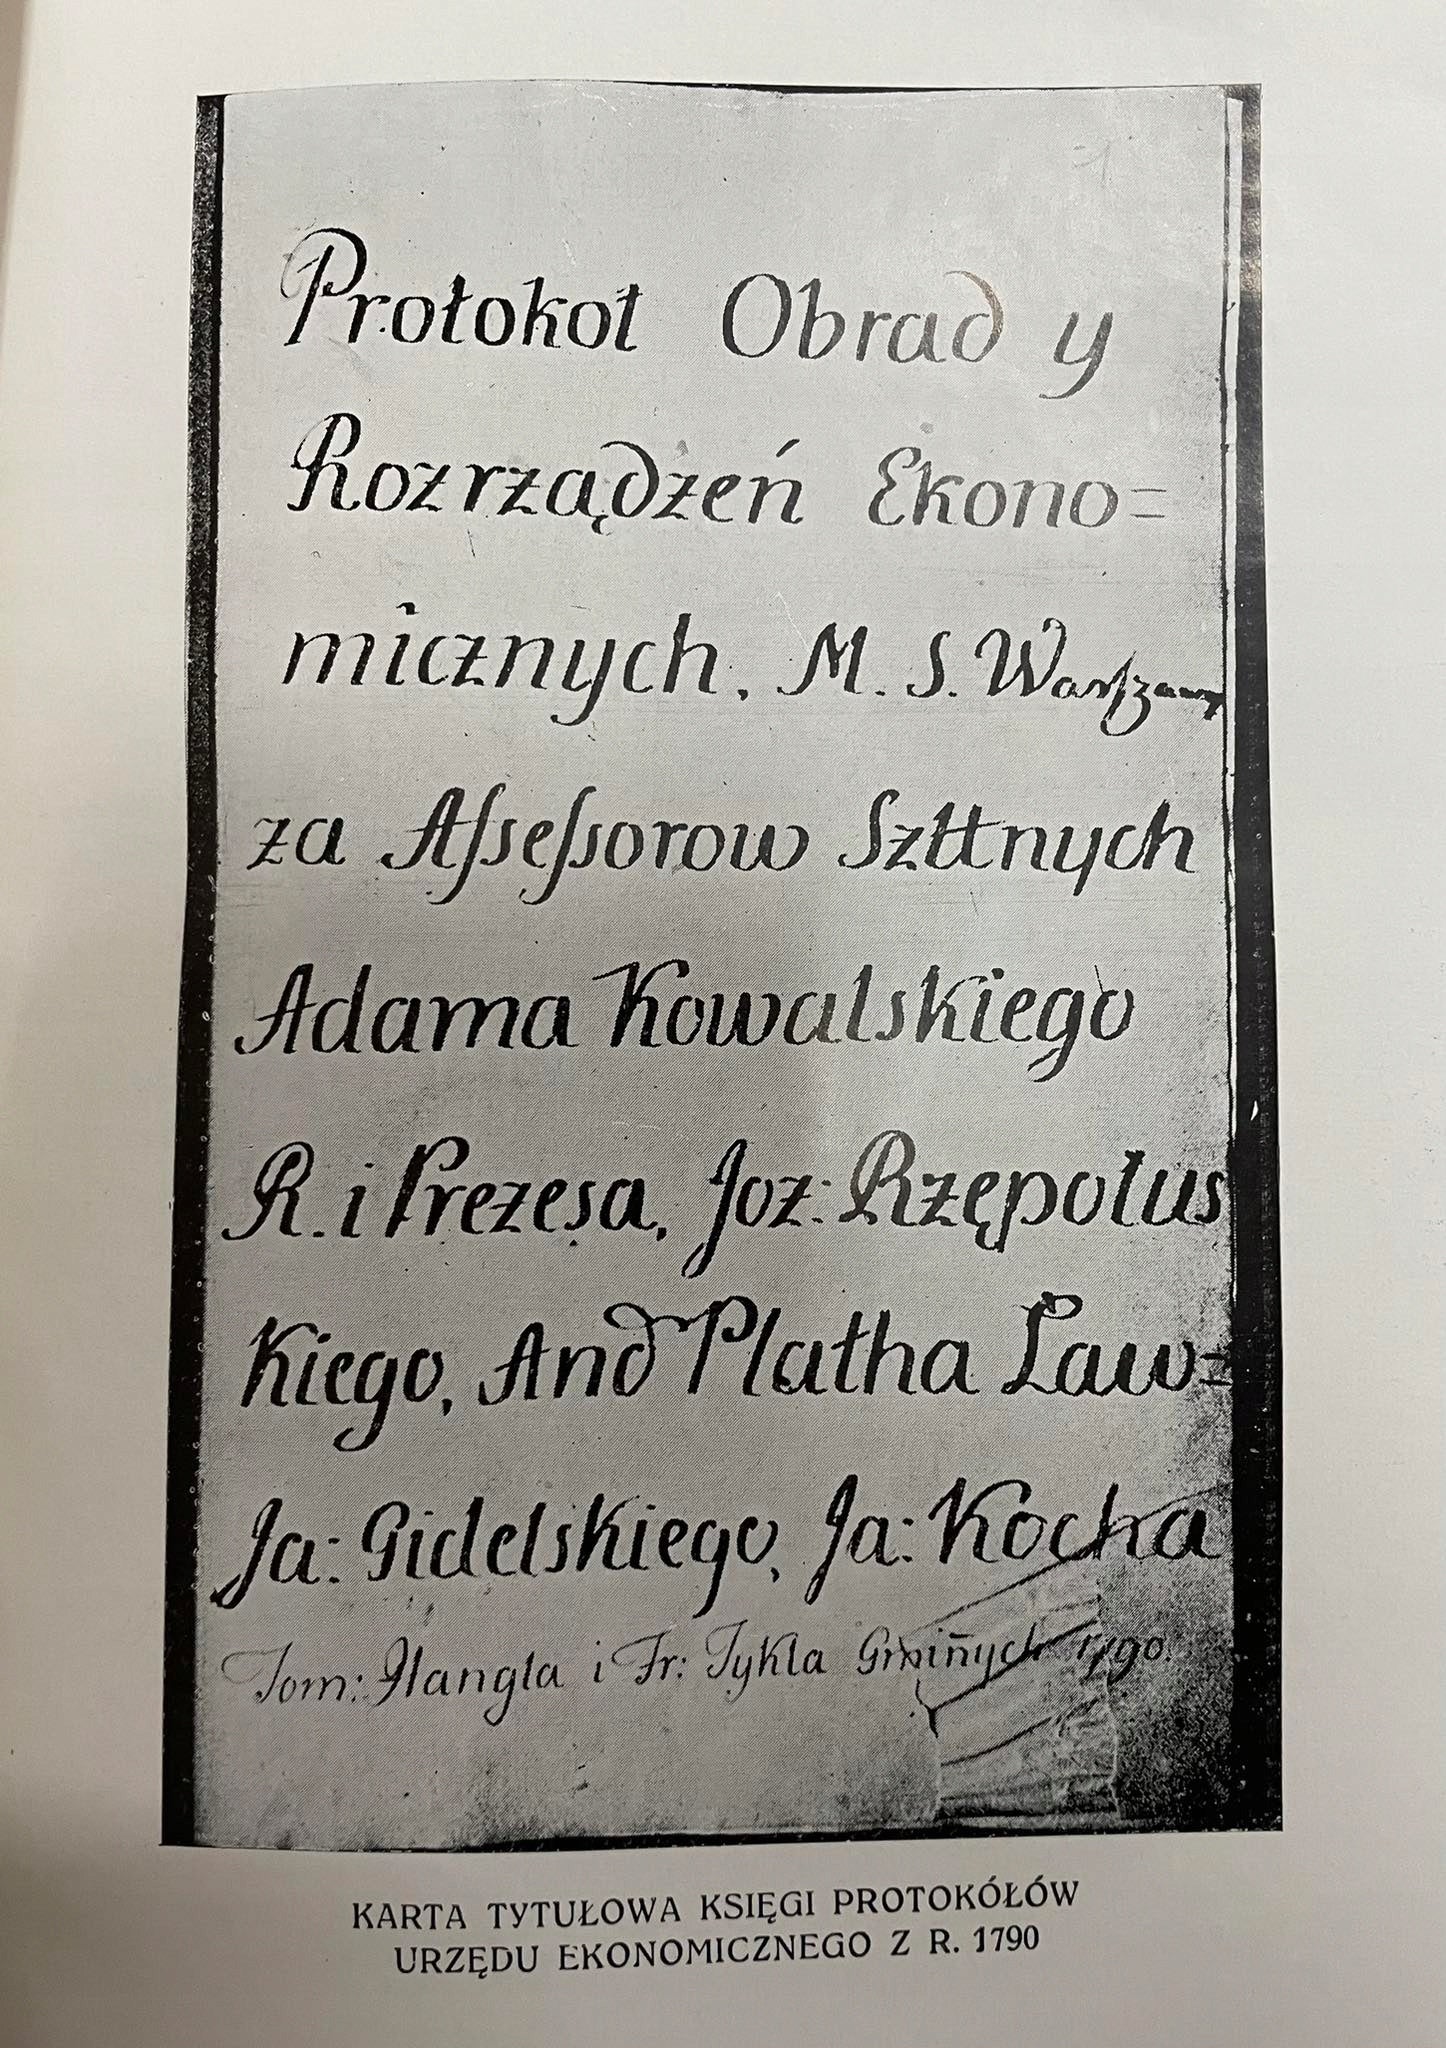 Protokoł Obrad y
Rozrządzeń Ekono=
micznych, M. S. Warszawy
za Assessorow Szttnych
Adama Kowalskiego
R. i Prezesa, Joz: Rzępołus
Kiego, And Platha Ław=
Ja: Gidelskiego, Ja: Kocha
Tom: Hangla i Fr: Tykla Gmin̄ych 1790.
KARTA TYTUŁOWA KSIĘGI PROTOKÓŁÓW
URZĘDU EKONOMICZNEGO Z R. 1790